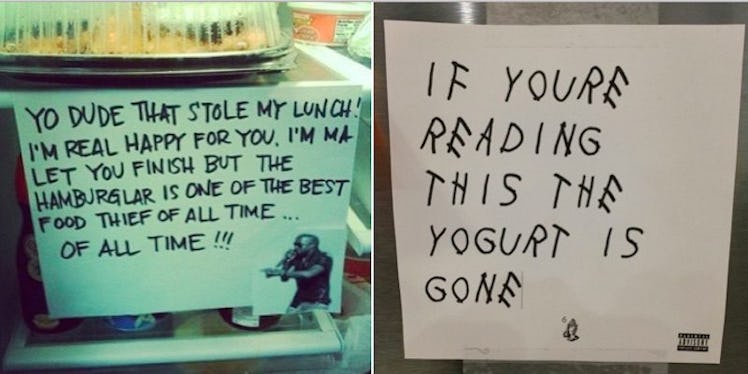 YO DUDE THAT STOLE MY LUNCH!
I'M REAL HAPPY FOR YOU. I'M MA
LET YOU FINISH BUT THE
HAMBURGLAR IS ONE OF THE BEST
FOOD THIEF OF ALL TIME ...
OF ALL TIME !!!
IF YOURE
READING
THIS THE
YOGURT IS
GONE
6
PARENTAL
ADVISORY